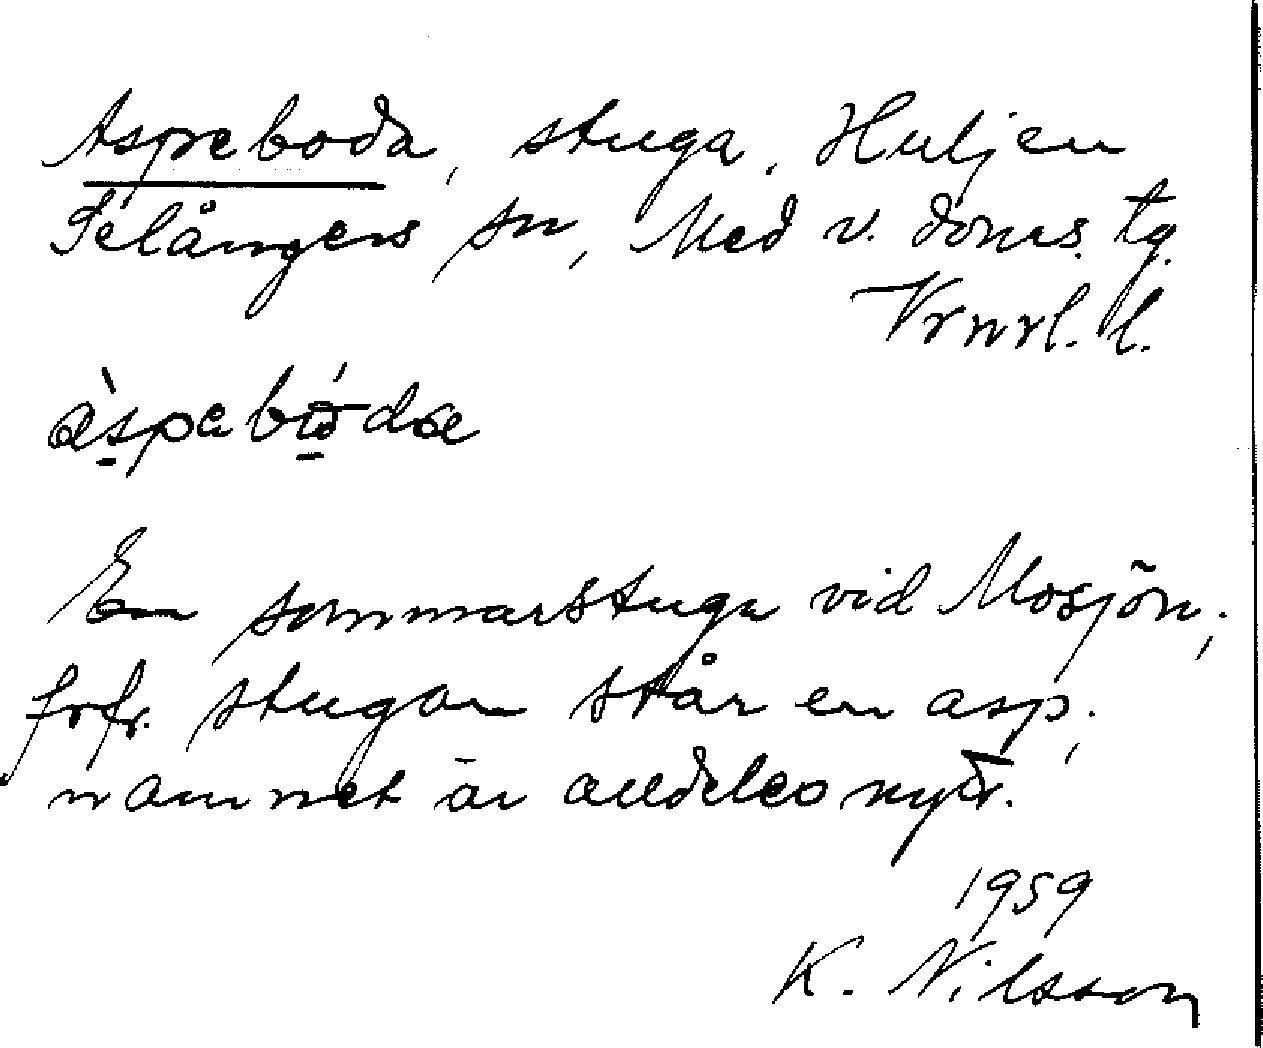 Aspeboda, stuga, Huljen
Selångers sn, Med v. doms. tg.
Vrnrl. l.
àspebóda
En sommarstuga vid Mosjön;
frfr. stugan står en asp;
namnet är alldeles nytt.
1959
K. Nilsson